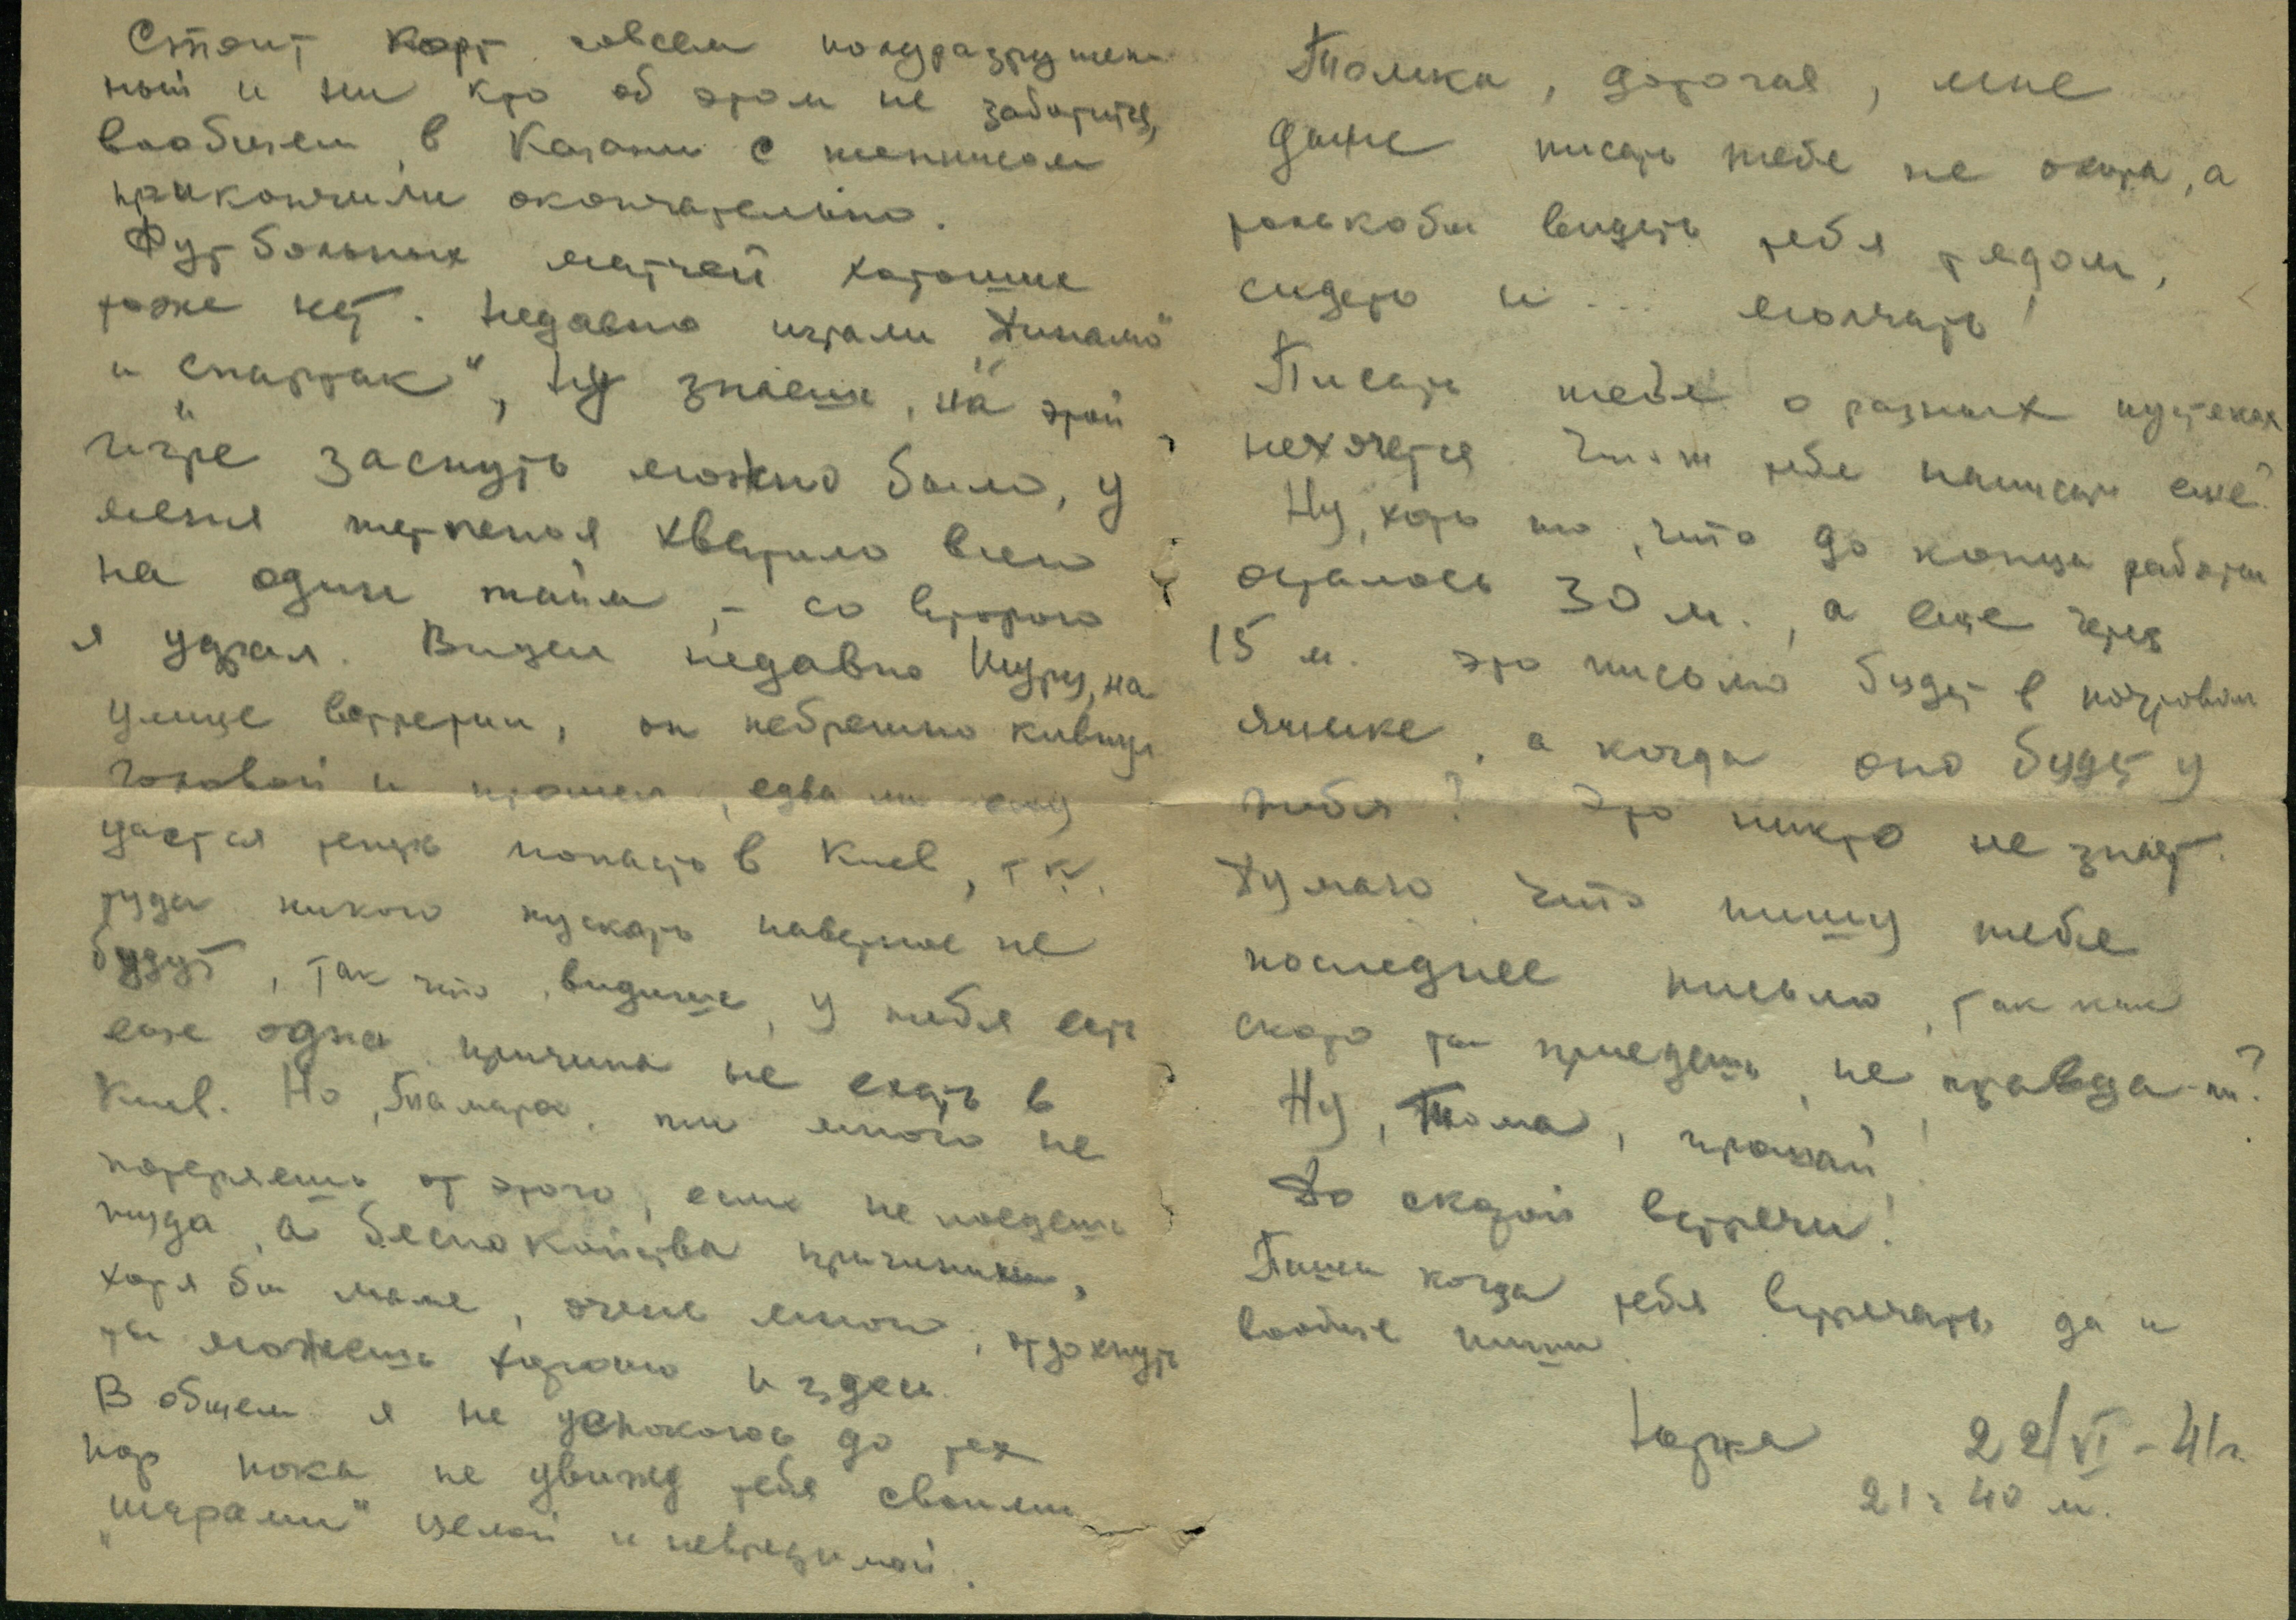 Стоит корт совсем полуразрушен
ный и ни кто об этом не заботится,
вообщем, в Казани с теннисом
прикончили окончательно.
Футбольных матчей хороших
тоже нет. Недавно играли „Динамо"
и „Спартак", Ну знаешь, на этой
игре заснуть можно было, у
меня терпения хватило всего
на один тайм, – со второго
я удрал. Видел недавно Шуру, на
улице встретил, он небрежно кивнул
головой и прошел, едва ли ему
удастся теперь попасть в Киев, т.к.
туда никого пускать наверное не
будут, так что, видишь, у тебя есть
еще одна причина не ехать в
Киев. Но, Тамара, ты много не
потеряешь от этого, если не поедешь
туда, а беспокойства причинишь,
хотя бы маме, очень много, отдохнуть
ты можешь хорошо и здесь.
В общем я не успокоюсь до тех
пор пока не увижу тебя своими
„шарами" целой и невредимой.
Томка, дорогая, мне
даже писать тебе не охота, а
только бы видеть тебя рядом,
сидеть и ... молчать!
Писать тебе о разных пустяках
нехочется. Что ж тебе написать еще?
Ну, хоть то, что до конца работы
осталось 30 м., а еще через
15 м. это письмо будет в почтовом
ящике, а когда оно будет у
тебя? Это никто не знает.
Думаю, что пишу тебе
последнее письмо, так как
скоро ты приедешь, не правда-ли?
Ну, Тома, прощай!
До скорой встречи!
Пиши когда тебя встречать да и
вообще пиши.
22/VI – 41г.
21 г 40 м.